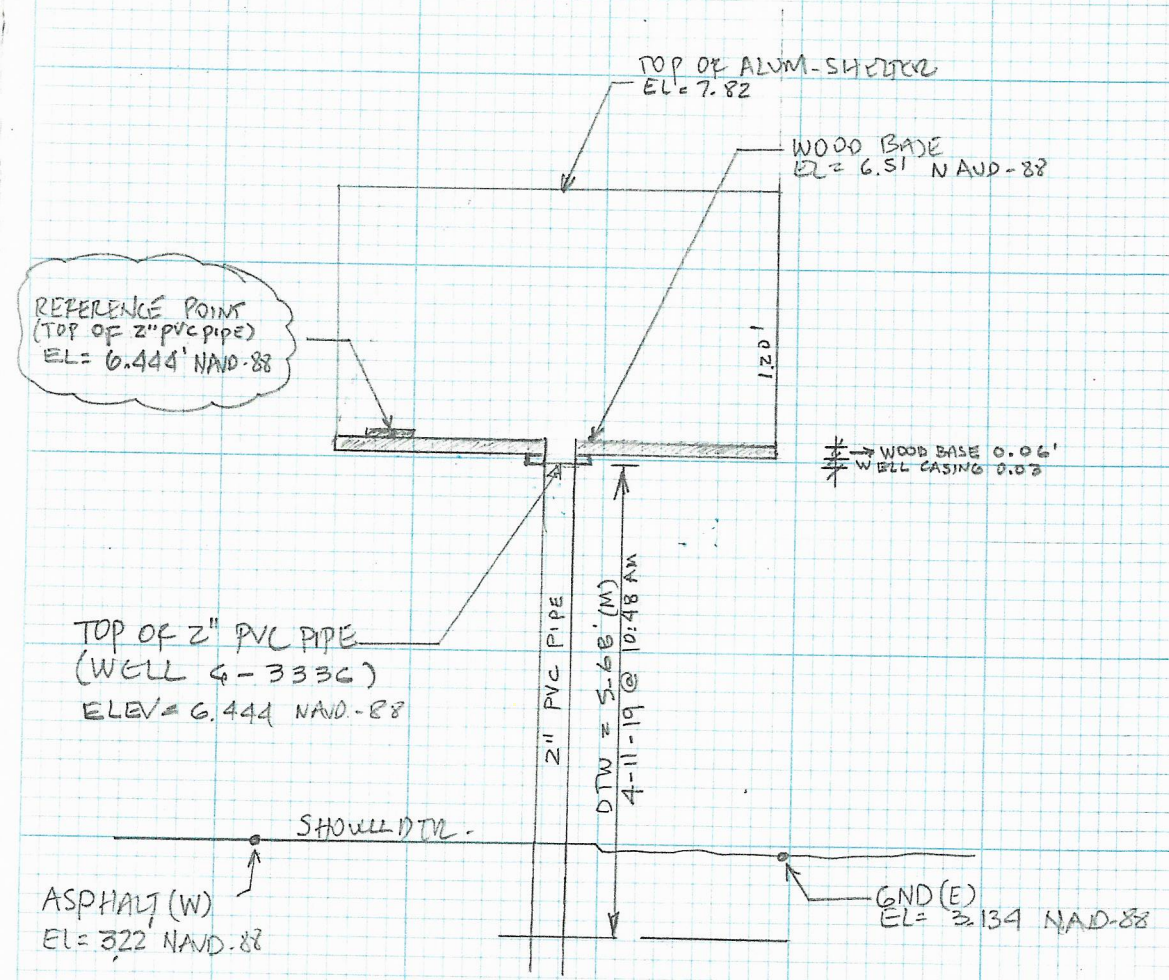 TOP OF ALUM-SHELTER
EL = 7.82
WOOD BASE
EL = 6.51 NAVD-88
REFERENCE POINT
(TOP OF 2" PVC PIPE)
EL= 6.444' NAVD-88
1.20'
→ WOOD BASE 0.06'
WELL CASING 0.03
TOP OF 2" PVC PIPE
(WELL G-3336)
ELEV = 6.444 NAVD-88
2" PVC PIPE
DTW = 5.68' (M)
4-11-19 @ 10:48 AM
SHOULDER.
ASPHALT (W)
El = 3.22' NAVD-88
GND (E)
EL= 3.134 NAVD-88